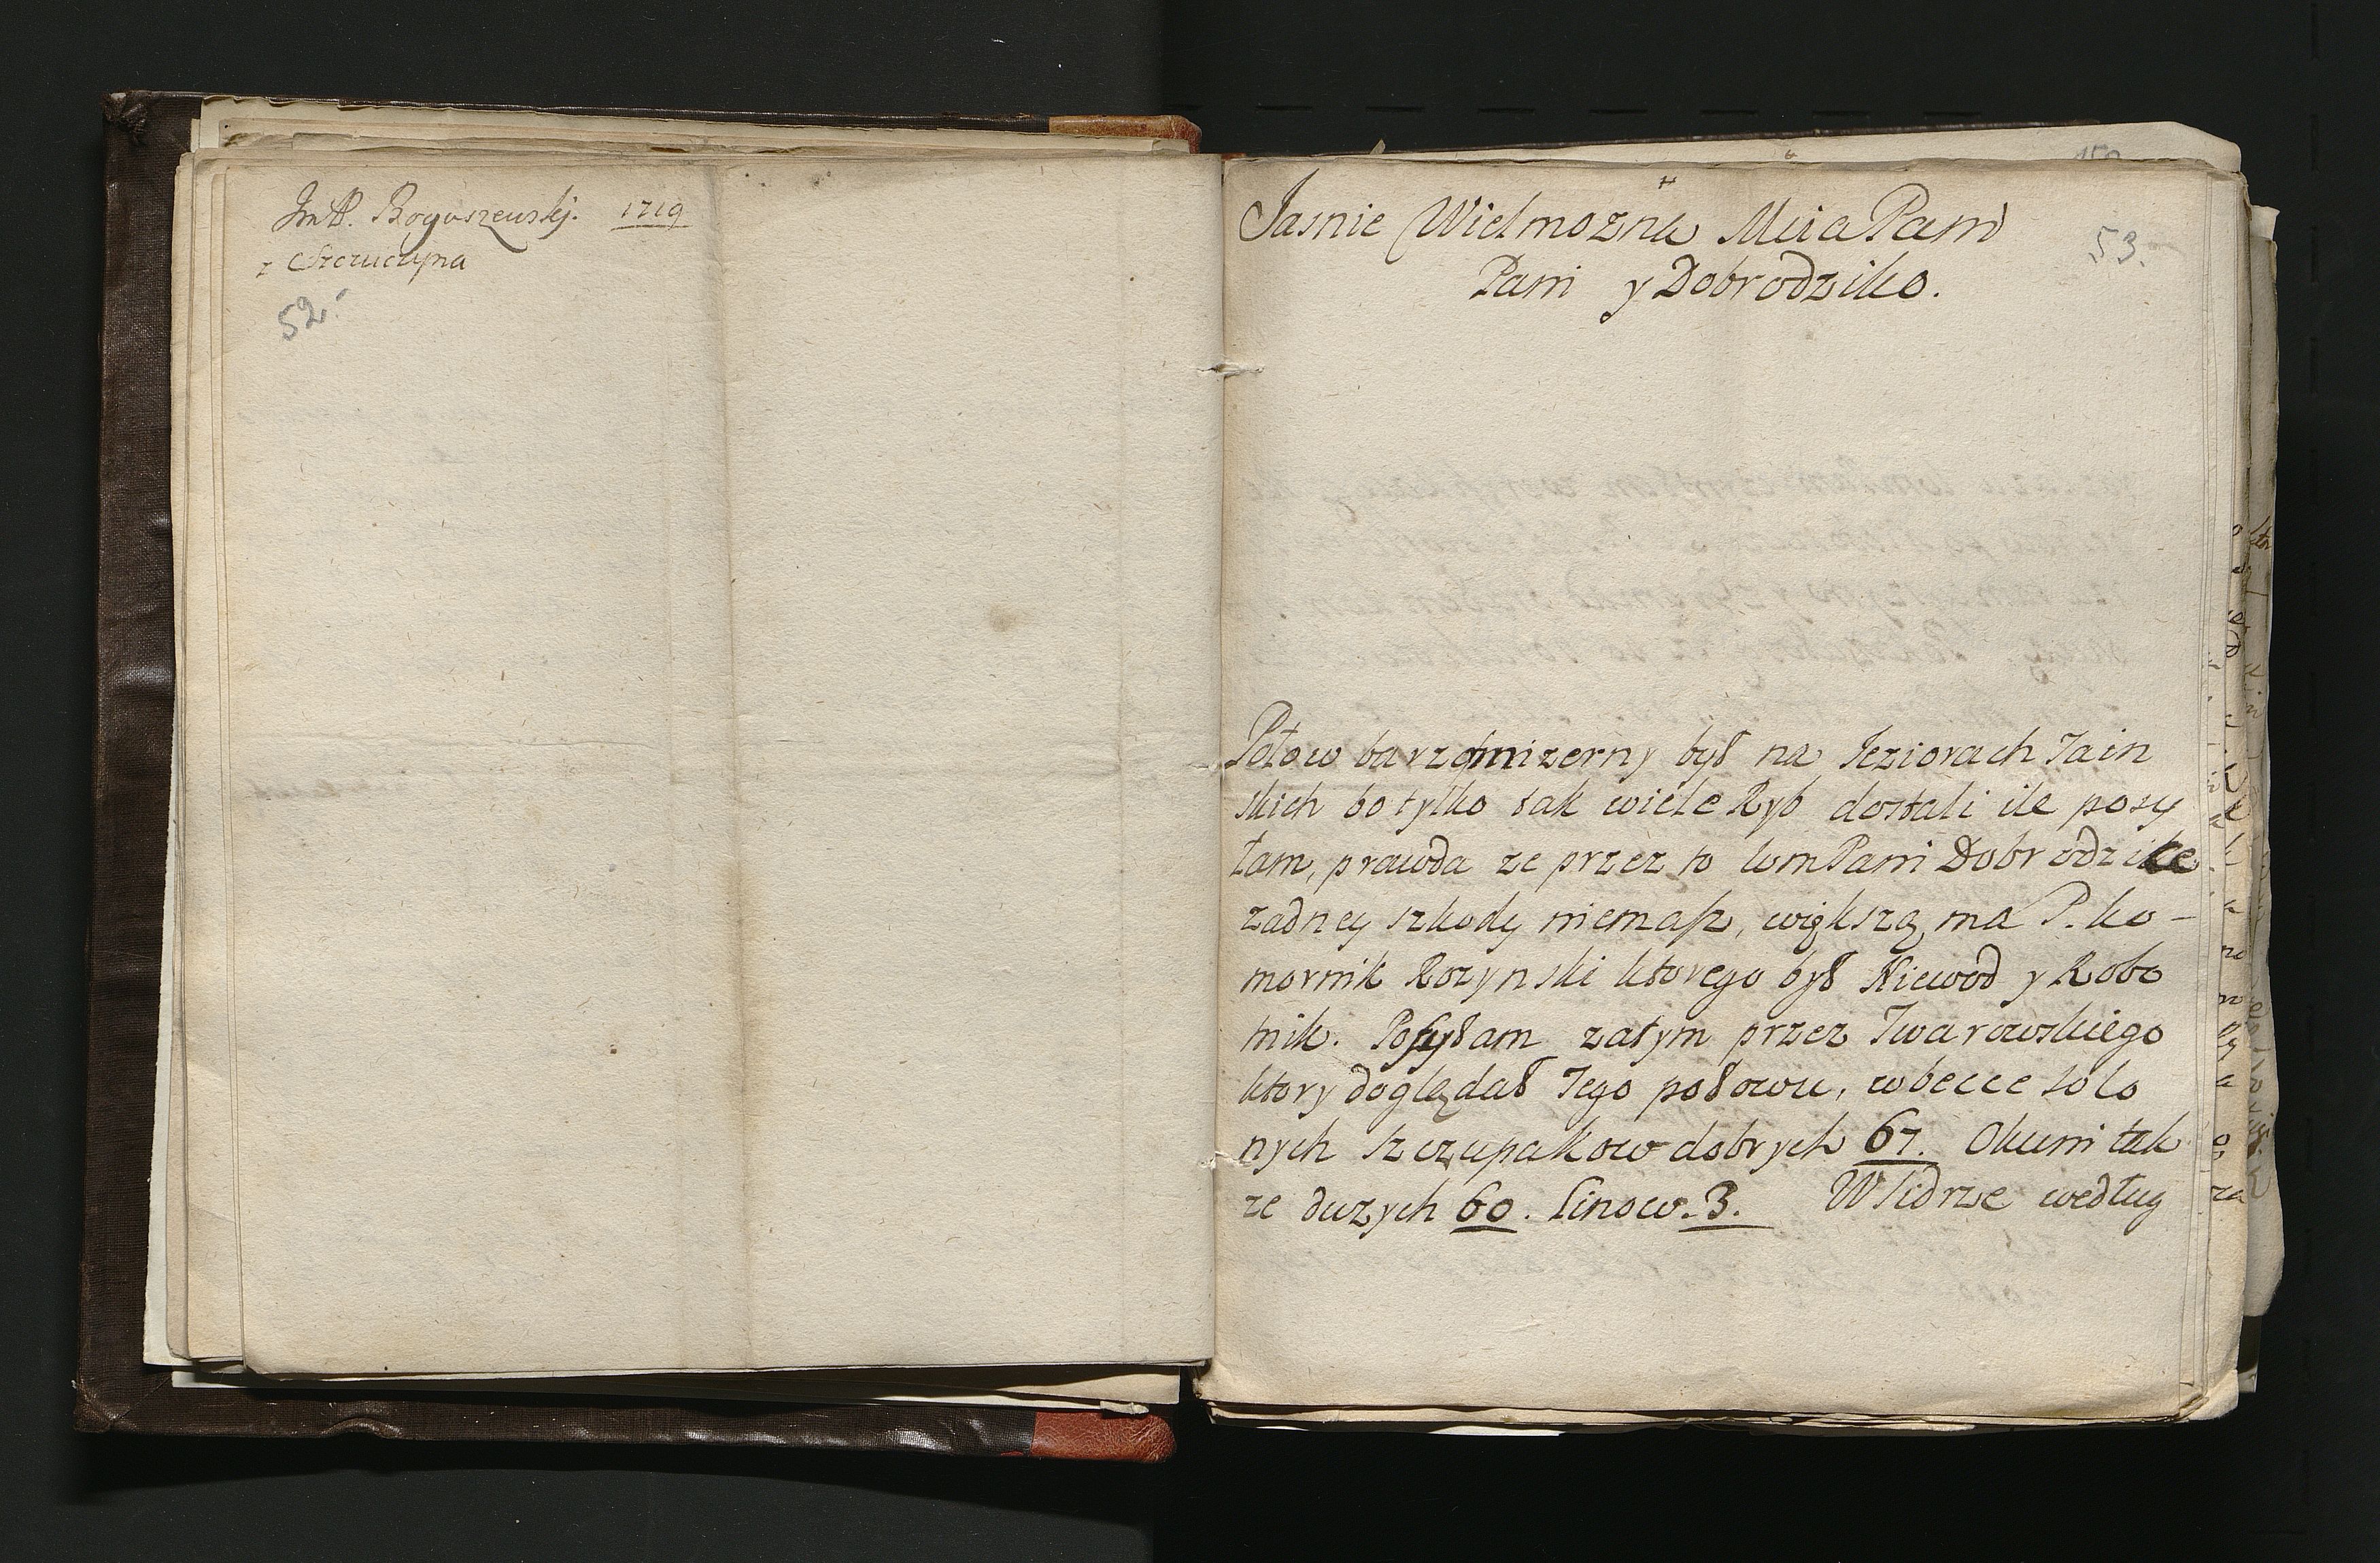 JmP. Boguszewskj. 1719
z Szczuczyna
52.
Jasnie Wielmozna Mćia Pani
53.
Pani y Dobrodziko.
Połow barzo mizerny był na Jeziorach Jain
skich bo tylko tak wiele Ryb dostali ile posy
łam, prawda ze przez to WmPani Dobrodzike
zadney szkody niemasz, większą ma P. Ko-
mornik Rozynski ktorego był Niewod y Robo
tnik. Posyłam zatym przez Twarowskiego
ktory doglądał Tego połowu, w becce solo
nych szczupakow dobrych 67. Okuni tak
ze duzych 60. Linow. 3. W Sidrze według